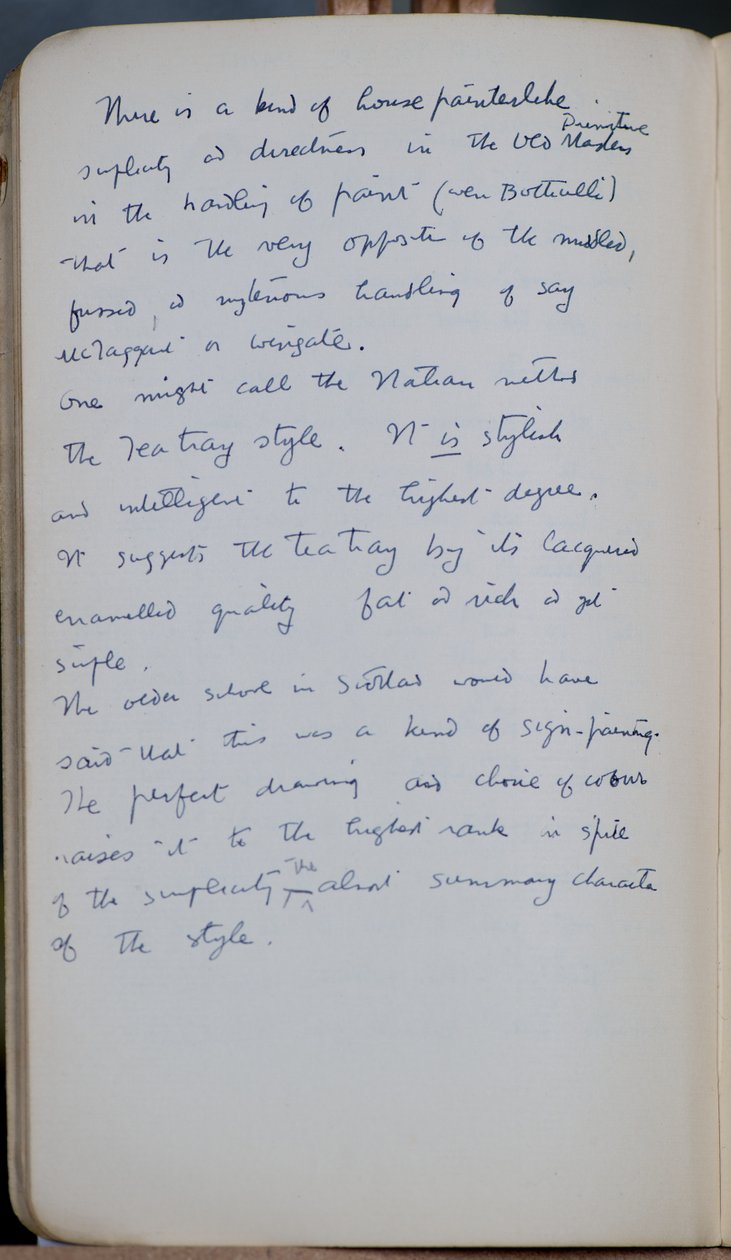 There is a kind of house painterlike
simplicity and directness in the Old Primitive Masters
in the handling of paint (even Botticelli)
that is the very opposite of the muddled,
fussed, and mysterious handling of say
McTaggart or Wingate.
One might call the Italian method
the Tea tray style. It is stylish
and intelligent to the highest degree.
It suggests the tea tray by its lacquered
enamelled quality fat and rich and yet
simple.
The older school in Scotland would have
said that this was a kind of sign-painting.
The perfect drawing and choice of colour
raises it to the highest rank in spite
of the simplicity the almost summary character
of the style.